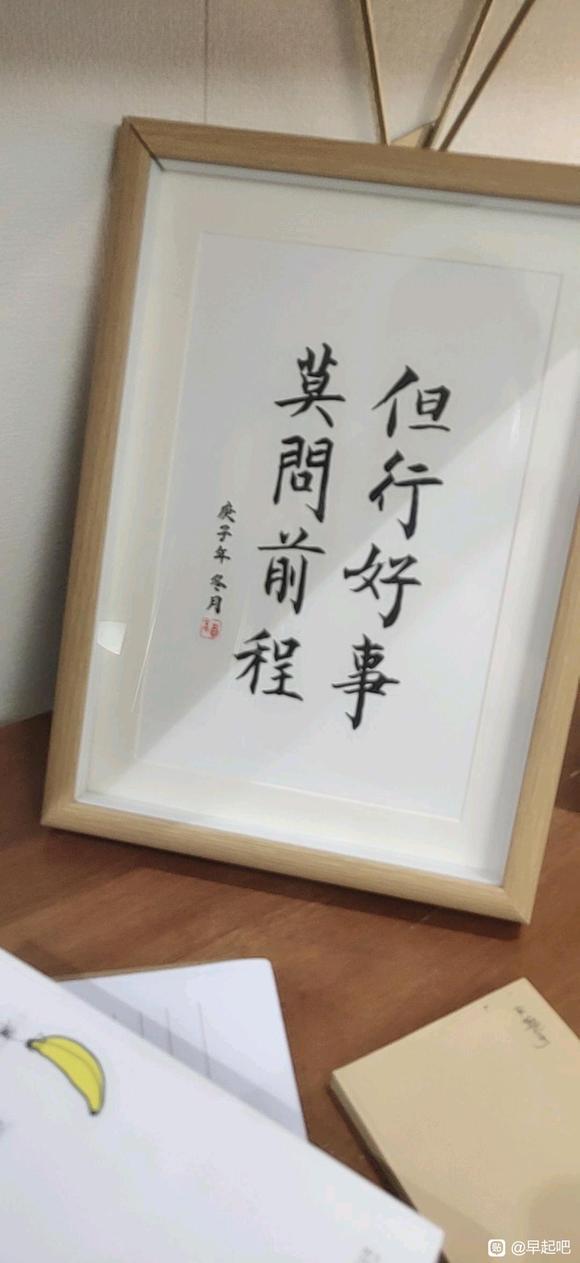 但行好事
莫問前程
庚子年 冬月
贴 @早起吧